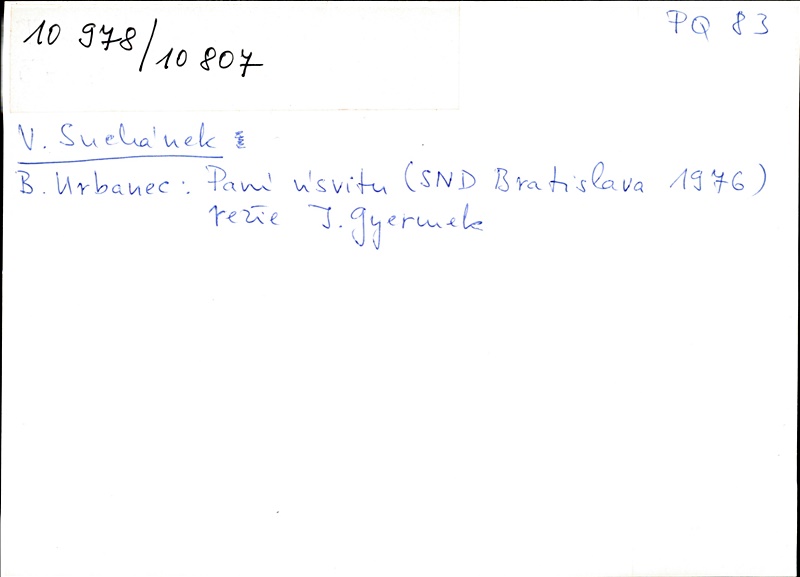 10 978/10 807
PQ 83
V. Suchánek
B. Urbanec: Paní úsvitu (SND Bratislava 1976)
režie J. Gyermek